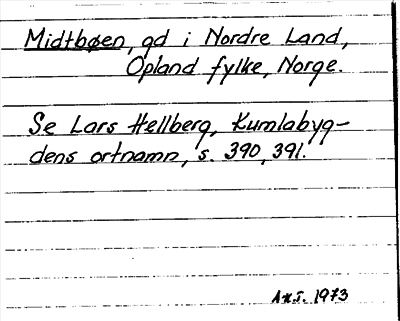 Midtbøen, gd i Nordre Land,
Opland fylke, Norge.
Se Lars Hellberg, Kumlabyg-
dens ortnamn, s. 390, 391.
1973